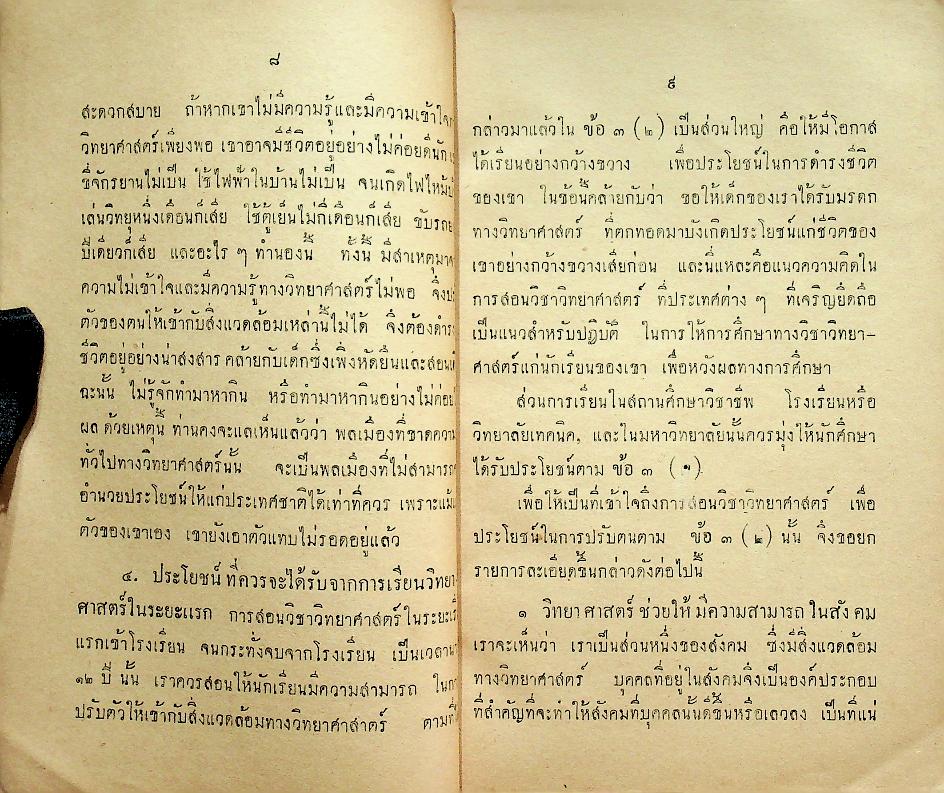 ๘
สะดวกสบาย ถ้าหากเขาไม่มีความรู้และมีความเข้าใจ
วิทยาศาสตร์เพียงพอ เขาอาจมีชีวิตอยู่อย่างไม่ค่อยดีนัก
ขี่จักรยานไม่เป็น ใช้ไฟฟ้าในบ้านไม่เป็น จนเกิดไฟไหม้
เล่นวิทยุหนึ่งเดือนก็เสีย ใช้ตู้เย็นไม่กี่เดือนก็เสีย ขับรถ
ปีเดียวก็เสีย และอะไร ๆ ทำนองนี้ ทั้งนี้ มีสาเหตุมา
ความไม่เข้าใจและมีความรู้ทางวิทยาศาสตร์ไม่พอ จึง
ตัวของตนให้เข้ากับสิ่งแวดล้อมเหล่านี้ไม่ได้ จึงต้องดำร
ชีวิตอยู่อย่างน่าสงสาร คล้ายกับเด็กซึ่งเพิ่งหัดยืนและสอน
ฉะนั้น ไม่รู้จักทำมาหากิน หรือทำมาหากินอย่างไม่ค่อย
ผล ด้วยเหตุนี้ ท่านคงจะแลเห็นแล้วว่า พลเมืองที่ขาดความ
ทั่วไปทางวิทยาศาสตร์นั้น จะเป็นพลเมืองที่ไม่สามารถ
อำนวยประโยชน์ให้แก่ประเทศชาติได้เท่าที่ควร เพราะแม้
ตัวของเขาเอง เขายังเอาตัวแทบไม่รอดอยู่แล้ว
๔. ประโยชน์ ที่ควรจะได้รับจากการเรียนวิทยา
ศาสตร์ในระยะแรก การสอนวิชาวิทยาศาสตร์ ในระยะ
แรกเข้าโรงเรียน จนกระทั่งจบจากโรงเรียน เป็นเวลา
๑๒ ปี นั้น เราควรสอนให้นักเรียนมีความสามารถ ใน
ปรับตัวให้เข้ากับสิ่งแวดล้อมทางวิทยาศาสาตร์ ตาม
๙
กล่าวมาแล้วใน ข้อ ๓ (๒) เป็นส่วนใหญ่ คือให้มีโอกาส
ได้เรียนอย่างกว้างขวาง เพื่อประโยชน์ในการดำรงชีวิต
ของเขา ในข้อนี้คล้ายกับว่า ขอให้เด็กของเราได้รับมรดก
ทางวิทยาศาสตร์ ที่ตกทอดมาบังเกิดประโยชน์แก่ชีวิตของ
เขาอย่างกว้างขวางเสียก่อน และนี่แหละคือแนวความคิดใน
การสอนวิชาวิทยาศาสตร์ ที่ประเทศต่าง ๆ ที่เจริญยึดถือ
เป็นแนวสำหรับปฏิบัติ ในการให้การศึกษาทางวิชาวิทยา-
ศาสตร์แก่นักเรียนของเขา เพื่อหวังผลทางการศึกษา
ส่วนการเรียนในสถานศึกษาวิชาชีพ โรงเรียนหรือ
วิทยาลัยเทคนิค, และในมหาวิทยาลัยนั้นควรมุ่งให้นักศึกษา
ได้รับประโยชน์ตาม ข้อ ๓ (๑)
เพื่อให้เป็นที่เข้าใจถึงการสอนวิชาวิทยาศาสตร์ เพื่อ
ประโยชน์ในการปรับตนตาม ข้อ ๓ (๒) นั้น จึงขอยก
รายการละเอียดขึ้นกล่าวดังต่อไปนี้
๑ วิทยา ศาสตร์ ช่วยให้ มีความสามารถ ในสัง คม
เราจะเห็นว่า เราเป็นส่วนหนึ่งของสังคม ซึ่งมีสิ่งแวดล้อม
ทางวิทยาศาสตร์ บุคคลที่อยู่ในสังคมจึงเป็นองค์ประกอบ
ที่สำคัญที่จะทำให้สังคมที่บุคคลนั้นดีขึ้นหรือเลวลง เป็นที่แน่